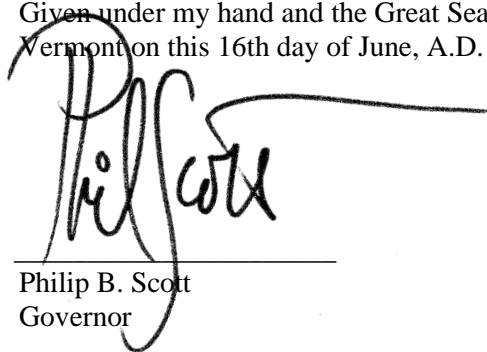 Given under my hand and the Great Sea
Vermont on this 16th day of June, A.D.
Phil Scott
Philip B. Scott
Governor